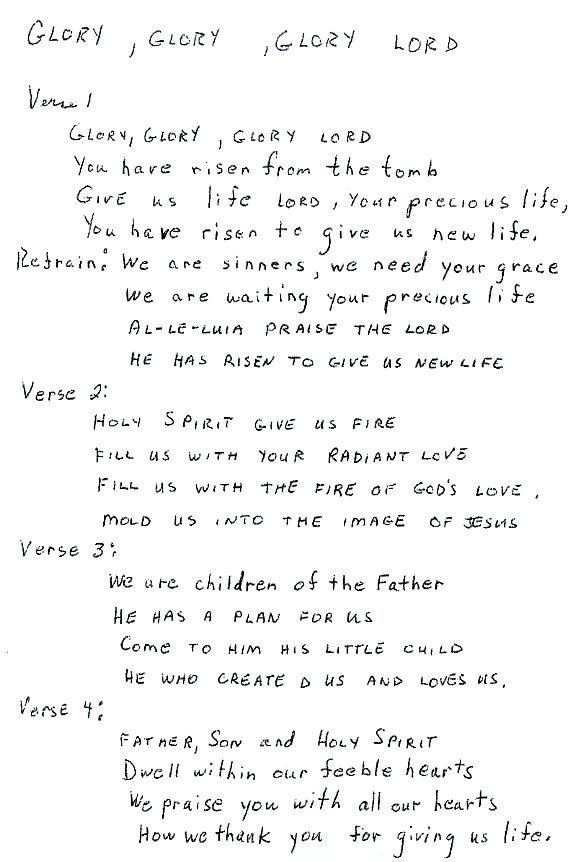 GLORY , GLORY , GLORY LORD
Verse 1
GLORY, GLORY , GLORY LORD
You have risen from the tomb
GIVE us life LORD, Your precious life,
You have risen to give us new life.
Refrain: We are sinners, we need your grace
We are waiting your precious life
AL-LE-LUIA PRAISE THE LORD
HE HAS RISEN TO GIVE US NEW LIFE
Verse 2:
HOLY SPIRIT GIVE US FIRE
FILL US WITH YOUR RADIANT LOVE
FILL US WITH THE FIRE OF GOD'S LOVE.
MOLD US INTO THE IMAGE OF JESUS
Verse 3:
We are children of the Father
HE HAS A PLAN FOR US
Come TO HIM HIS LITTLE CHILD
HE WHO CREATE D US AND LOVES US.
Verse 4:
FATHER, SON and HOLY SPIRIT
Dwell within our feeble hearts
We praise you with all our hearts
How we thank you for giving us life.